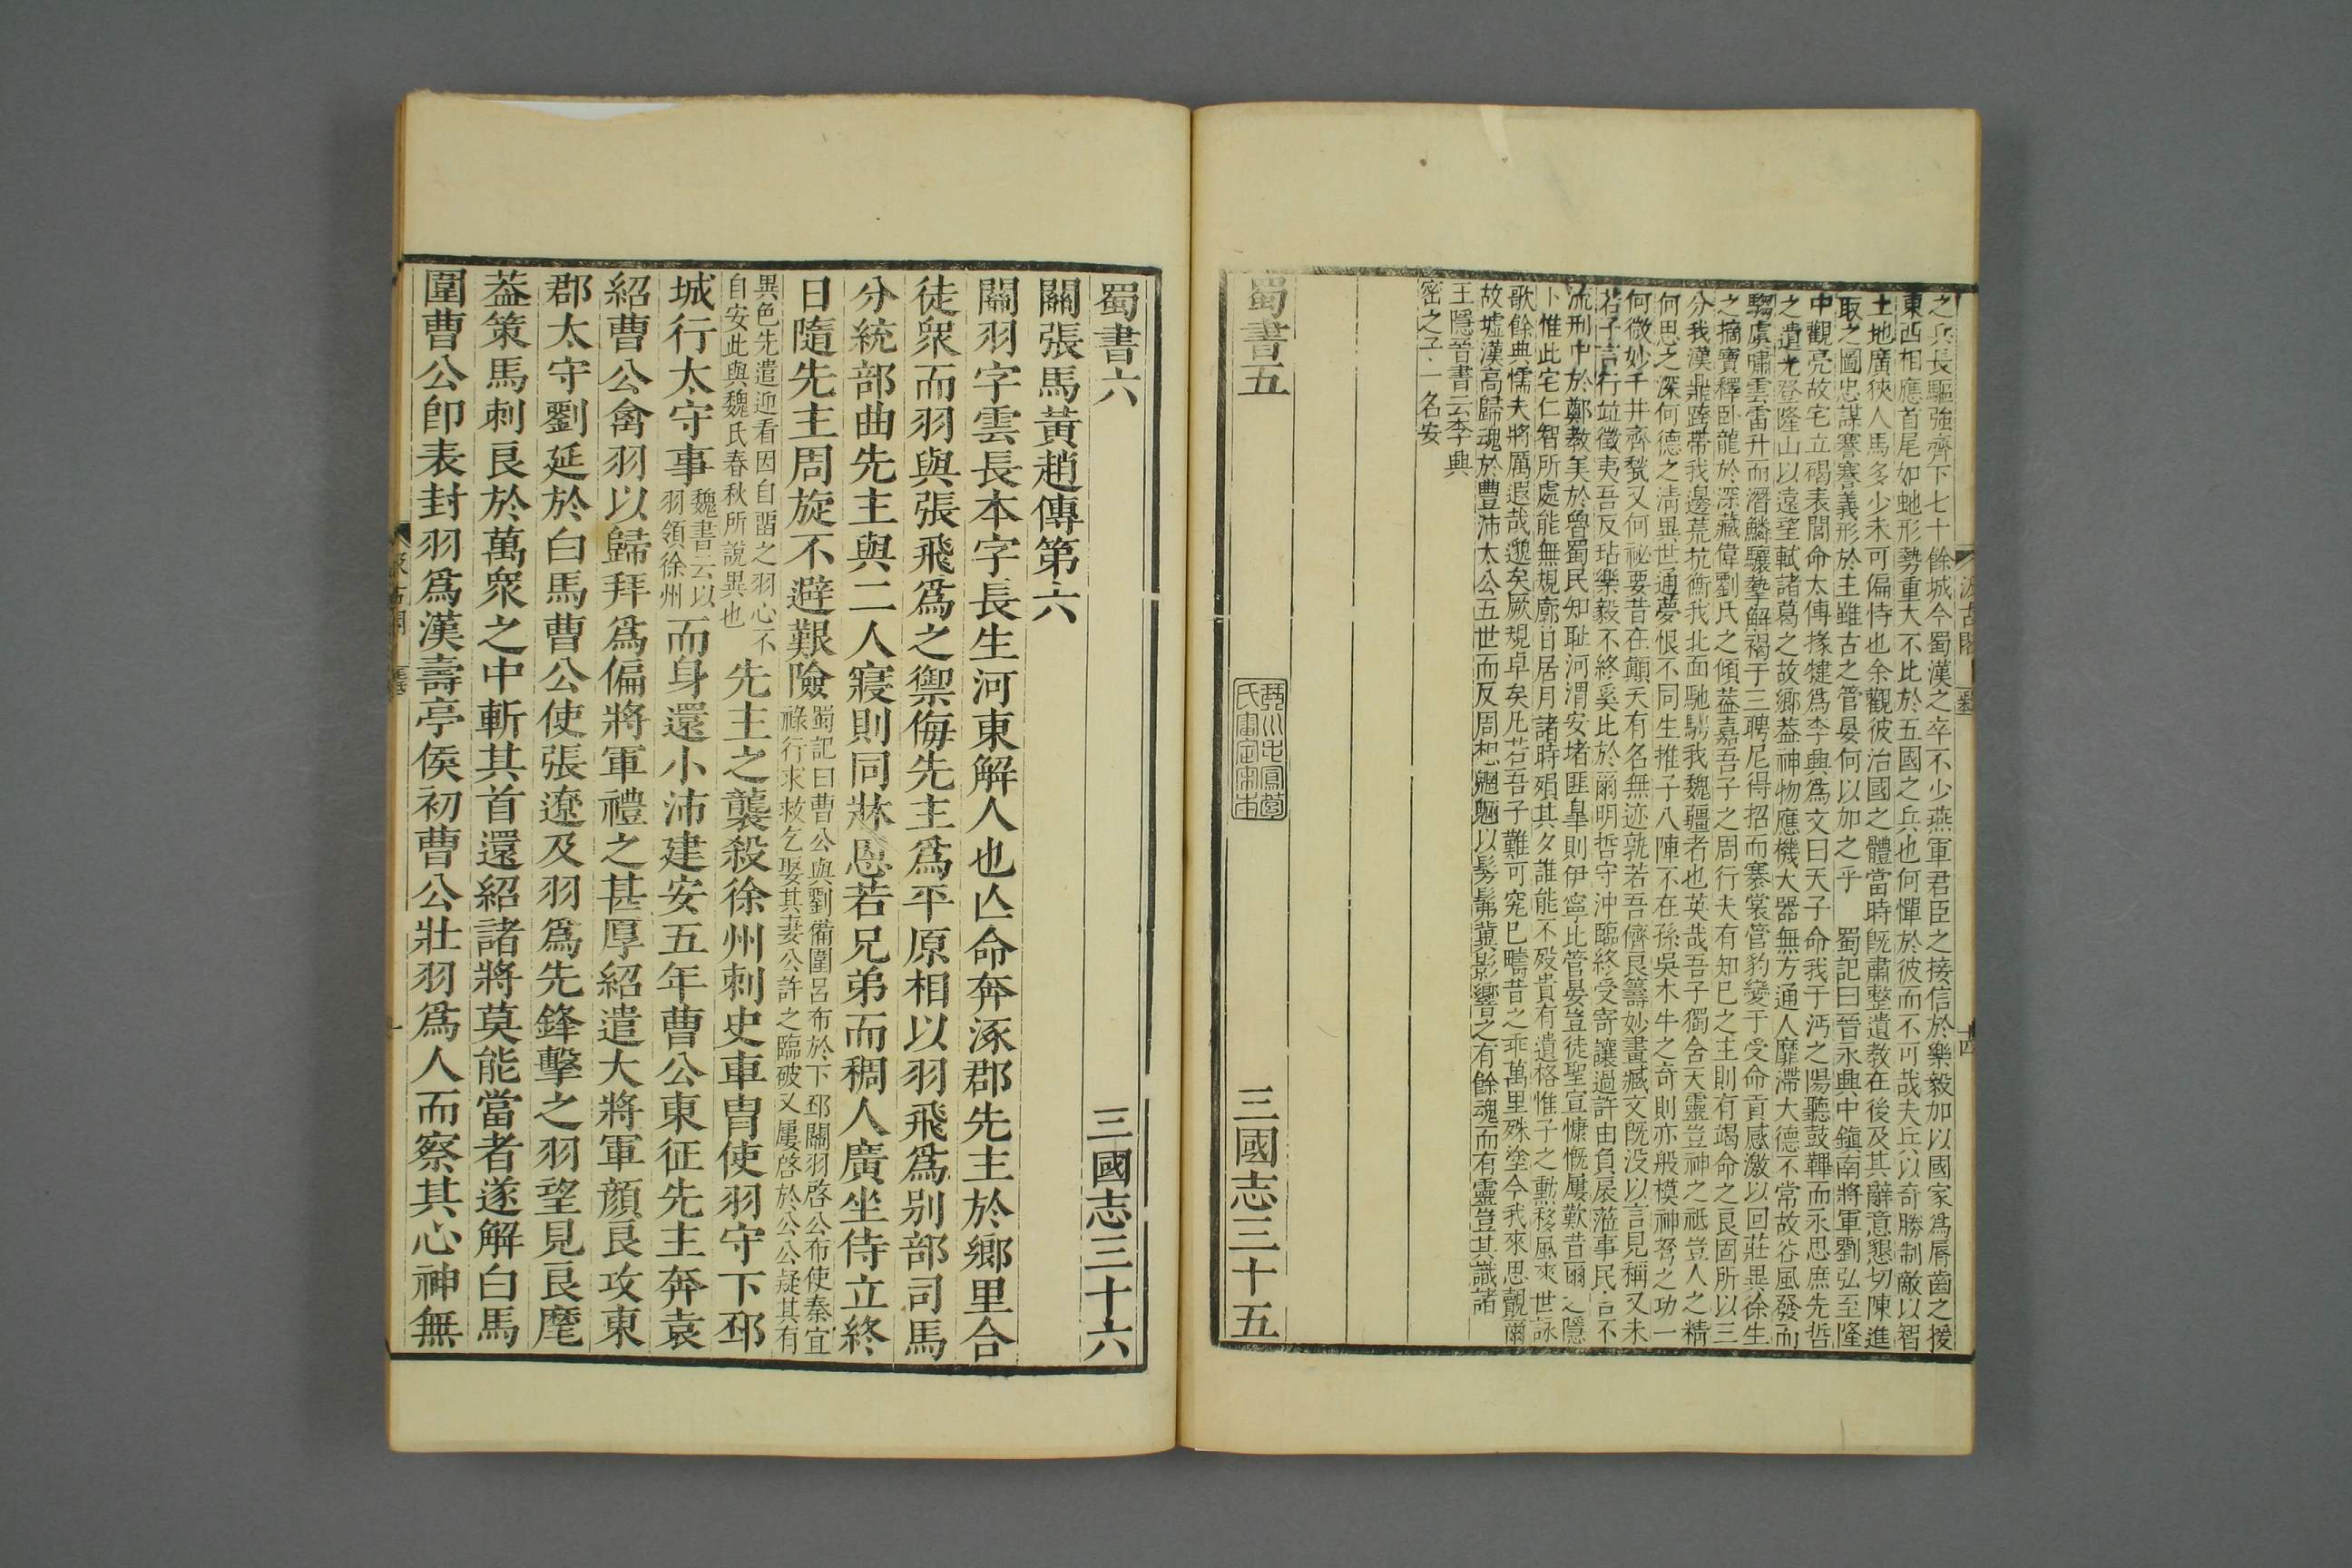 之兵長驅強齊下七十餘城今蜀漢之卒不少燕軍君臣之接信於樂毅加以國家爲脣齒之援
東西相應首尾如虵形勢重大不比於五國之兵也何憚於彼而不可哉夫兵以奇勝制敵以智
土地廣狹人馬多少未可偏恃也余觀彼治國之體當時旣肅整遺教在後及其辭意懇切陳進
取之圖忠謀謇謇義形於主雖古之管晏何以加之乎 蜀記曰晉永興中鎭南將軍劉弘至隆
中觀亮故宅立碣表閭命太傅掾犍爲李興爲文曰天子命我于沔之陽聽鼓鞞而永思庶先哲
之遺光登隆山以遠望軾諸葛之故鄉葢神物應機大器無方通人靡滯大德不常故谷風發而
騶虞嘯雲雷升而潛鱗驤摯解褐于三聘尼得招而褰裳管豹變于受命貢感激以回莊異徐生
之摘寶釋臥龍於深藏偉劉氏之傾葢嘉吾子之周行夫有知巳之主則有竭命之良固所以三
分我漢鼎跨帶我邊荒抗衡我北面馳騁我魏疆者也英哉吾子獨含天靈豈神之祇豈人之精
何思之深何德之清異世通夢恨不同生推子八陣不在孫吳木牛之奇則亦般模神弩之功一
何微妙千井齊甃又何祕要昔在顚夭有名無迹孰若吾儕良籌妙畫臧文旣沒以言見稱又未
若子言行竝徵夷吾反坫樂毅不終奚比於爾明哲守沖臨終受寄讓過許由負扆蒞事民言不
流刑中於鄭教美於魯蜀民知恥河渭安堵匪皋則伊寧比管晏豈徒聖宣慷慨屢歎昔爾之隱
卜惟此宅仁智所處能無規廓日居月諸時殞其夕誰能不歿貴有遺格惟子之勳移風來世詠
歌餘典懦夫將厲遐哉邈矣厥規卓矣凡若吾子難可究巳疇昔之乖萬里殊塗今我來思覿爾
故墟漢高歸魂於豐沛太公五世而反周想魍魎以髣髴冀影響之有餘魂而有靈豈其識諸
王隱晉書云李興
密之子一名安
蜀書五 三國志三十五
汲古閣 十四
蜀書六 三國志三十六
關張馬黃趙傳第六
關羽字雲長本字長生河東解人也亾命奔涿郡先主於鄉里合
徒衆而羽與張飛爲之禦侮先主爲平原相以羽飛爲別部司馬
分統部曲先主與二人寢則同牀恩若兄弟而稠人廣坐侍立終
日隨先主周旋不避艱險 蜀記曰曹公與劉備圍呂布於下邳關羽啓公布使秦宜
祿行求救乞娶其妻公許之臨破又屢啓於公公疑其有
異色先遣迎看因自畱之羽心不
自安此與魏氏春秋所說異也 先主之襲殺徐州刺史車冑使羽守下邳
城行太守事 魏書云以
羽領徐州 而身還小沛建安五年曹公東征先主奔袁
紹曹公禽羽以歸拜爲偏將軍禮之甚厚紹遣大將軍顏良攻東
郡太守劉延於白馬曹公使張遼及羽爲先鋒擊之羽望見良麾
葢策馬刺良於萬衆之中斬其首還紹諸將莫能當者遂解白馬
圍曹公卽表封羽爲漢壽亭侯初曹公壯羽爲人而察其心神無